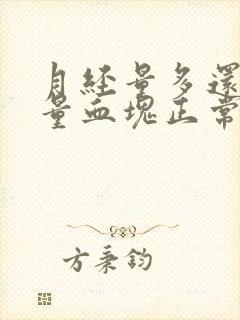 月經量多還
量血塊正常
方秉鈞